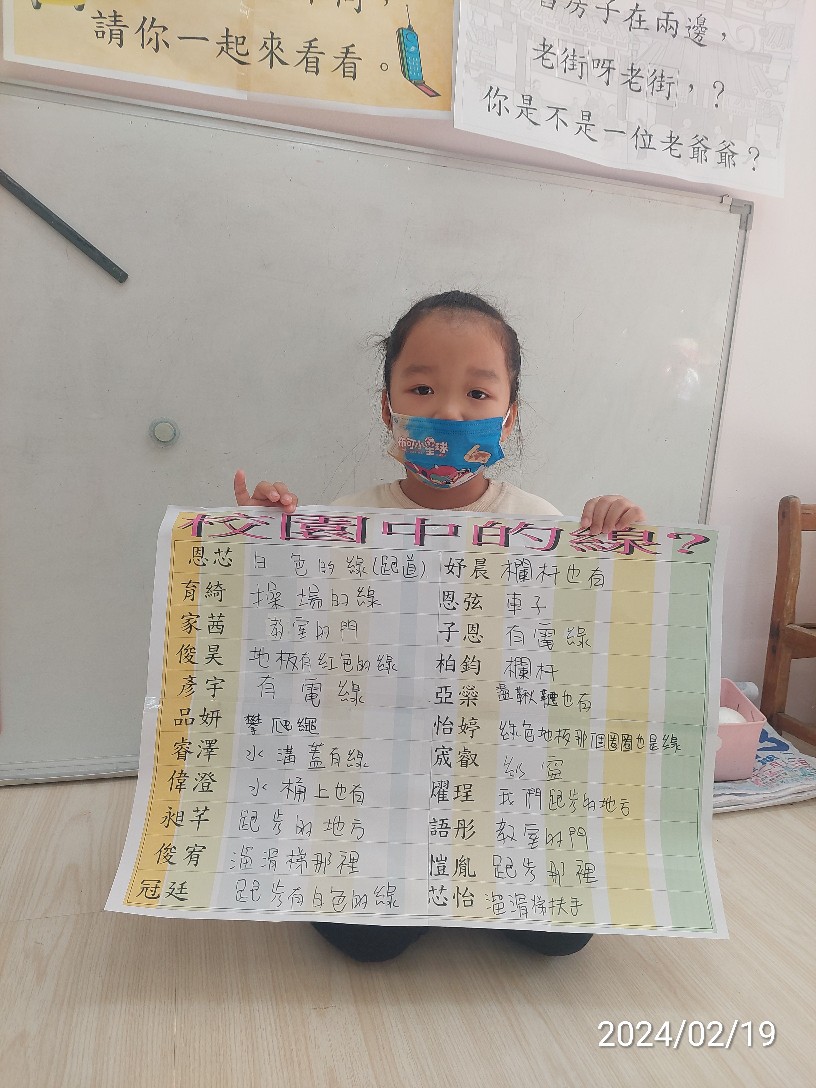 請你一起來看看。
房子在兩邊，
老街呀老街，？
你是不是一位老爺爺？
布可小星球
校園中的線？
恩芯 白色的線(跑道)
育綺 操場的線
家茜 教室的門
俊昊 地板有紅色的線
彥宇 有電線
品妍 攀爬繩
睿澤 水溝蓋有線
偉澄 水桶上也有
昶芊 跑步的地方
俊宥 溜滑梯那裡
冠廷 跑步有白色的線
妤晨 欄杆也有
恩弦 車子
子恩 有電線
柏鈞 欄杆
亞藥 盪鞦韆也有
怡婷 綠色地板那個圈圈也是線
宬叡
燿珵 我們跑步的地方
語彤 教室的門
愷胤 跑步那裡
芯怡 溜滑梯扶手
2024/02/19